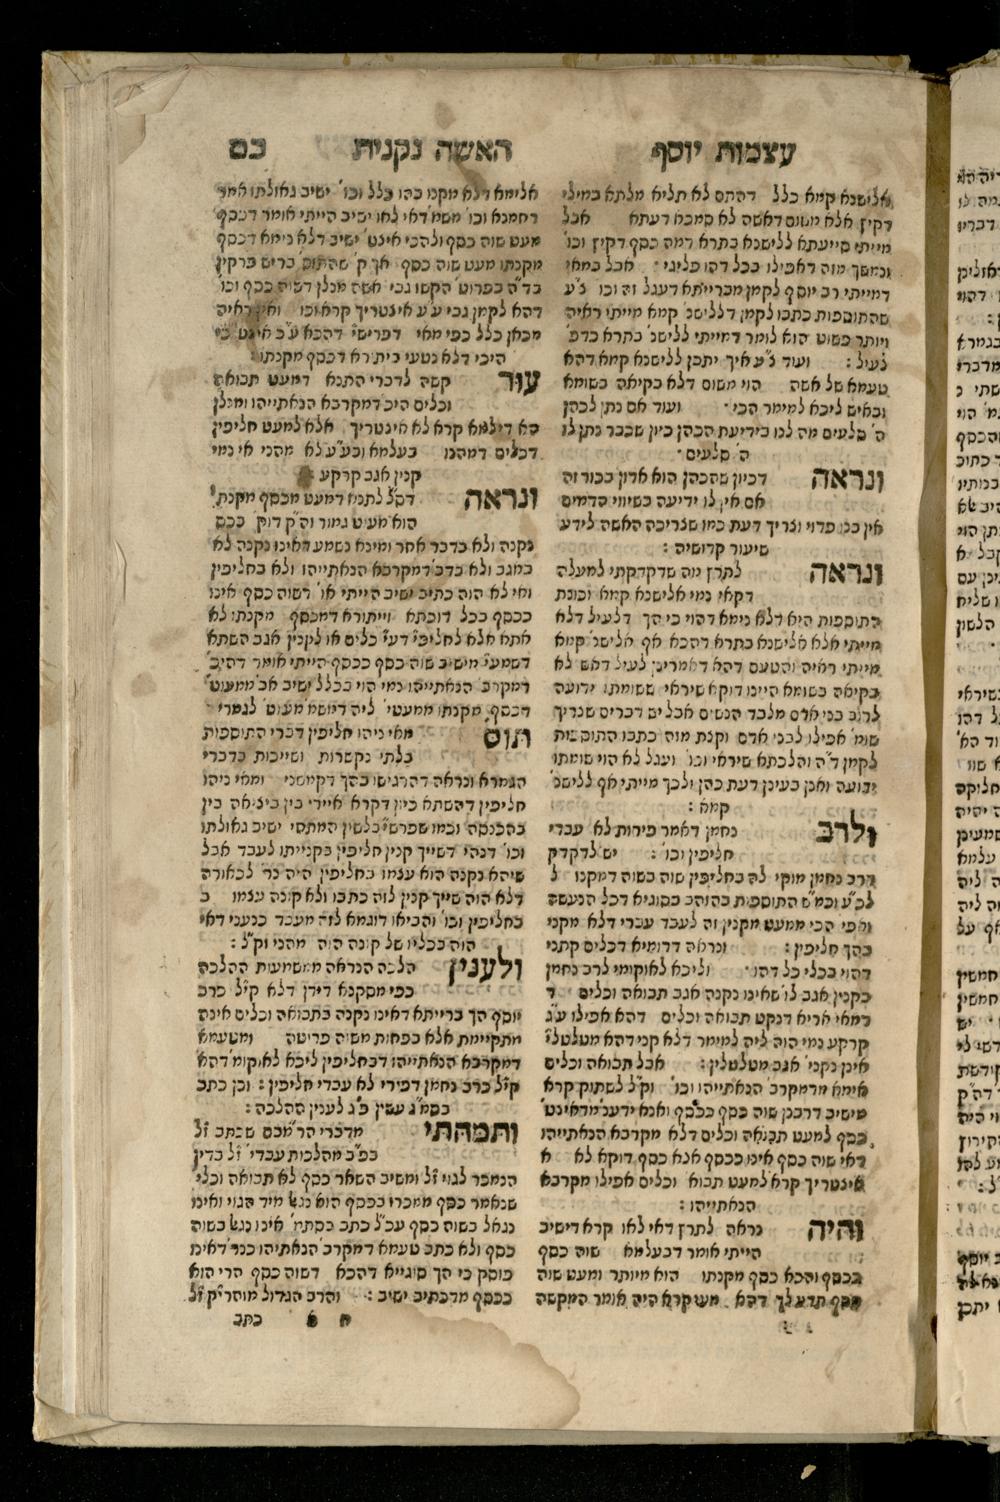 עצמות יוסף האשה נקנית כט
אלישנא קמא כלל דהתם לא תליא מלתא במילי
דקין אלא משום דאשה לא סמכה דעתא אבל
מייתי סייעתא ללישנא בתרא דמה כסף דקין וכו'
ונמשך מזה דאפילו בכל דהו פליגי אבל במאי
דמייתי רב יוסף לקמן מברייתא דעגל זה וכו' צ"ע
שהתוספות כתבו לקמן דללישנ' קמא מייתי ראיה
ויותר פשוט הוא לומר דמייתי ללישנ' בתרא כדפ'
לעיל : ועוד צ"ע איך יתכן ללישנא קמא דהא
טעמא של אשה הוי משום דלא בקיאה בשומא
ובאיש ליכא למימר הכי ועוד אם נתן לכהן
ה' סלעים מה לנו בידיעת הכהן כיון שכבר נתן לו
ה' סלעים
ונראה דכיון שהכהן הוא אדון בכור זה
אם אין לו ידיעה בשיווי הדמים
אין בנו פדוי וצריך דעת כמו שצריכה האשה לידע
שיעור קדושיה :
ונראה לתרץ מה שדקדקתי למעלה
דקאי נמי אלישנא קמא וכונת
התוספות היא דלא נימא דהוי כי הך דלעיל דלא
מייתי אלא אלישנא בתרא דהכא אף אלישנ' קמא
מייתי ראיה והטעם דהא דאמרינן לעיל דאש' לא
בקיאה בשומא היינו דוקא שיראי ששומתו ידועה
לרוב בני אדם מלבד הנשים אבל יש דברים שצריך
שומ' אפילו לבני אדם וקצת מזה כתבו התוספות
לקמן ד"ה והלכתא שיראי וכו' ועגל לא הוי שומתו
ידועה ואנן בעינן דעת כהן ולכך מייתי אף ללישנ'
קמא :
ולרב נחמן דאמר פירות לא עבדי
חליפין וכו' : יש לדקדק
דרב נחמן מוקי לה בחליפין שוה בשוה דמקנו ל
לכ"ע וכמ"ש התוספות בהזהב בסוגיא דכל הנעשה
ומפי הכי ממעט מקנין זה לעבד עברי דלא מקני
בהך חליפין : ונראה דרומיא דכלים קתני
דהוי בכלי כל דהו וליכא לאוקומי לרב נחמן
בקנין אגב לו' שאינו נקנה אגב תבואה וכלים ד
דמאי אריא דנקט תבואה וכלים דהא אפילו ע"ג
קרקע נמי הוה ליה למימר דלא קני דהא מטלטלי
אינן נקני' אגב מטלטלין : אבל תבואה וכלים
אימא מדמקרב' הנאתייהו וכו' וק"ל לשתוק קרא
מישיב דרבנן שוה כסף ככסף ואנא ידענ' מדאינט'
כסף למעט תבואה וכלים דלא מקרבא הנאתייהו
דאי שוה כסף אינו ככסף אנא כסף דוקא לא א
אינטריך קרא למעט תבוא' וכלים אפילו מקרבא
הנאתייהו :
והיה נראה לתרץ דאי לאו קרא דישיב
הייתי אומר דבעלמא שוה כסף
ככסף והכא כסף מקנתו הוא מיותר ומעט שוה
כסף תדע לך דהא מעיקרא היה אומר המקשה
אלימא דלא מקנו בהו כלל וכו' ישיב גאולתו אמר
רחמנא וכו' משמ' דאי לאו ישיב הייתי אומר דכסף
מעט שוה כסף ולהכי אינט' ישיב דלא נימא דכסף
מקנתו מעט שוה כסף אך ק' שהתוס' בריש פרקין
בד"ה בפרוט' הקשו גבי אשה מנלן דשוה כסף וכו'
דהא לקמן גבי ע"ע אינטריך קרא וכו' ואין ראיה
מכאן כלל כפי מאי דפרישי' דהכא ע"כ אינט' כי
היכי דלא נטעי ביתירא דכסף מקנתו :
עוד קשה לדברי התנא דמעט תבואה
וכלים היכ' דמקרבא הנאתייהו ומנלן
הא דילמא קרא לא אינטריך אלא למעט חליפין
דכלים דמהנו בעלמא ובע"ע לא מהני אי נמי
קנין אגב קרקע
ונראה דס"ל לתנא דמעט מכסף מקנתו
הוא מעוט גמור וה"ק דוק' בכס'
נקנה ולא בדבר אחר ומינא נשמע דאינו נקנה לא
באגב ולא בדב' דמקרבא הנאתייהו ולא בחליפין
ואי לא הוה כתיב ישיב הייתי או' דשוה כסף אינו
ככסף בכל דוכתא וייתורא דמכסף מקנתו לא
אתא אלא לחליפי' דע"י כלים או לקנין אגב השתא
דשמעי' מישיב שוה כסף ככסף הייתי אומר דהיכ'
דמקרב' הנאתייהו נמי הוי בכלל ישיב אב' ממעוט
דכסף מקנתו ממעטי' ליה דמשמ' מעוט לגמרי
תוס' מאי ניהו חליפין דברי התוספות
בלתי נקשרות ושייכות בדברי
הגמרא ונראה דהרגישו בהך דקאמני ומאי ניהו
חליפין דהשתא כיון דקרא איירי בין ביציאה בין
בהכנסה וכמו שפרש"י בלשון המתחי' ישיב גאולתו
וכו' דנהי דשייך קנין חליפין בקנייתו לעבד אבל
שיהא נקנה הוא עצמו בחליפין היה נר' לכאורה
דלא הוה שייך קנין לזה כתבו ולא קונה עצמו ב
בחליפין וכו' והביאו דוגמא לזה מעבד כנעני דאי
הוה בכליו של קונה היה מהני וק"ל :
ולענין הלכה הנראה ממשמעות ההלכה
כפי מסקנא דידן דלא ק"ל כרב
יוסף הך ברייתא דאינו נקנה בתבואה וכלים אינה
מתקיימת אלא בפחות משוה פריטה ומטעמא
דמקרבא הנאתייהו דבחליפין ליכא לאוקומ' דהא
ק"ל כרב נחמן דפירי לא עבדי חליפין : וכן כתב
בסמ"ג עשין פ"ג לענין ההלכה :
ותמהתי מדברי הר"מבם שכתב ז"ל
בפ"ב מהלכות עבדי' ז"ל בדין
הנמכר לגוי ז"ל ומשיב השאר כסף לא תבואה וכלי'
שנאמר כסף ממכרו בכסף הוא נגאל מיד הגוי ואינו
נגאל בשוה כסף עכ"ל כתב בסתמ' אינו נגאל בשוה
כסף ולא כתב טעמא דמקרב' הנאתיהו כנר' דאינו
פוסק כי הך סוגייא דהכא דשוה כסף הרי הוא
ככסף מדכתיב ישיב : והרב הגדול מוהרי"ק ז"ל
ח א כתב